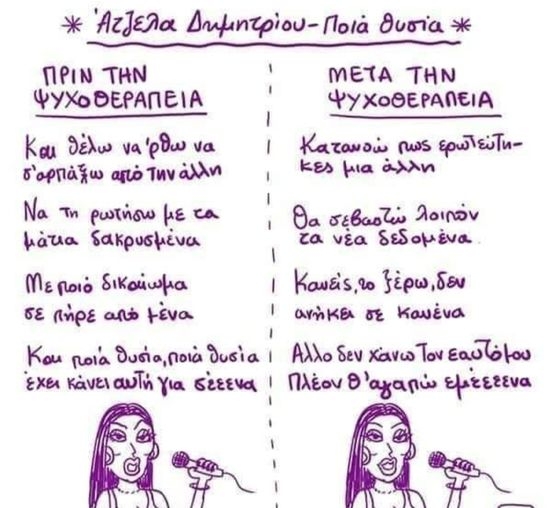 * Άτζελα Δημητρίου - Ποιά θυσία *
ΠΡΙΝ ΤΗΝ
ΨΥΧΟΘΕΡΑΠΕΙΑ
Και θέλω να 'ρθω να
σ'αρπάξω από την άλλη
Να τη ρωτήσω με τα
μάτια δακρυσμένα
Με ποιό δικαίωμα
σε πήρε από μένα
Και ποιά θυσία, ποιά θυσία
έχει κάνει αυτή για σέεενα
ΜΕΤΑ ΤΗΝ
ΨΥΧΟΘΕΡΑΠΕΙΑ
Κατανοώ πως ερωτεύτη-
κες μια άλλη
Θα σεβαστώ λοιπόν
τα νέα δεδομένα
Κανείς, το ξέρω, δεν
ανήκει σε κανένα
Άλλο δεν χάνω τον εαυτό μου
Πλέον θ'αγαπώ εμέεεενα